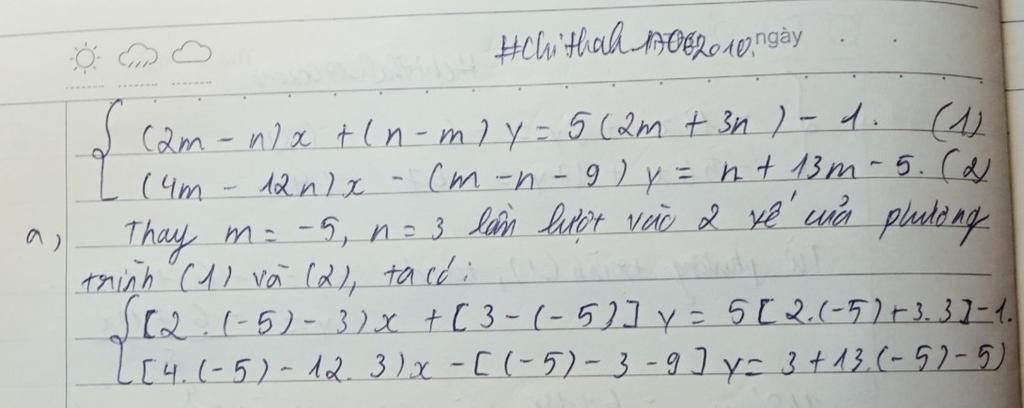 #Chithah 17062010. ngày
(2m - n)x + (n - m) y = 5(2m + 3n) - 1. (1)
(4m - 12n)x - (m - n - 9) y = n + 13m - 5. (2)
a, Thay m = -5, n = 3 lần lượt vào 2 vế của phương
trình (1) và (2), ta có:
[2.(-5) - 3)x + [3 - (-5)] y = 5[2.(-5) + 3.3] - 1.
[4.(-5) - 12.3)x - [(-5) - 3 - 9] y = 3 + 13.(-5) - 5)